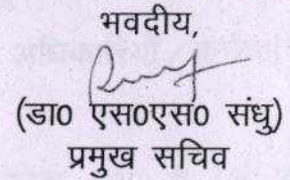 भवदीय,
(डा0 एस0एस0 संधु)
प्रमुख सचिव